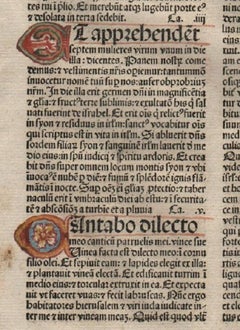 tes tui i plio. Et merebũt atqʒ lugebũt porte eˀ
⁊ desolata in terra sedebit. Ca. iiij
ET apprehendent
septem mulieres virum vnum in die
illa: dicentes. Panem nostrʒ come
demus: ⁊ vestimentis nr̃is operiemur: tantummõ
inuocetur nomē tuū sup nos: aufer obprobriuʒ
nr̃m. In die illa erit germen dñi in magnificētia
⁊ gl̃ia: ⁊ fruct⁹ terre sublimis: ⁊ exultatio his q̃ sal
uati fuerint de isrl̃. Et erit ois q̃ relict⁹ fuerit
in syon ⁊ residuus in irl̃m: sanct⁹ vocabitur ois
qui scriptus est in vita in irl̃m. Si abluerit dñs
sordem filiaꝝ syon ⁊ sanguinē irl̃m lauerit d̃ me
dio eius: in spũ iudicij ⁊ spiritu ardoris. Et crea
bit dñs super omnem locum montis syon ⁊ vbi
inuocat⁹ ē nubē p diem ⁊ fumū ⁊ splēdorē ignis flã
mãtis ī nocte. Sup oẽʒ eī gl̃iaʒ ptectio: ⁊ taber
naculū erit ī vmbraculū diei ab estu: ⁊ ī securita
tē ⁊ abscōsiōʒ a turbie ⁊ a pluuia Ca. v.
CAntabo dilecto
meo canticū patruelis mei. vinee sue
Vinea facta est dilecto meo: ī cornu
filio olei. Et sepiuit eam: ⁊ lapides elegit ex illa:
⁊ plantauit vineã electã. Et edificauit turrim ī
medio eius: ⁊ torcular extruxit in ea. Et expecta
uit vt faceret vuas: ⁊ fecit labruscas. Nūc ergo
habitatores hierusalem ⁊ viri iuda iudicate in
ter me ⁊ inter vineaʒ meaʒ. Quid est quod vl̃t